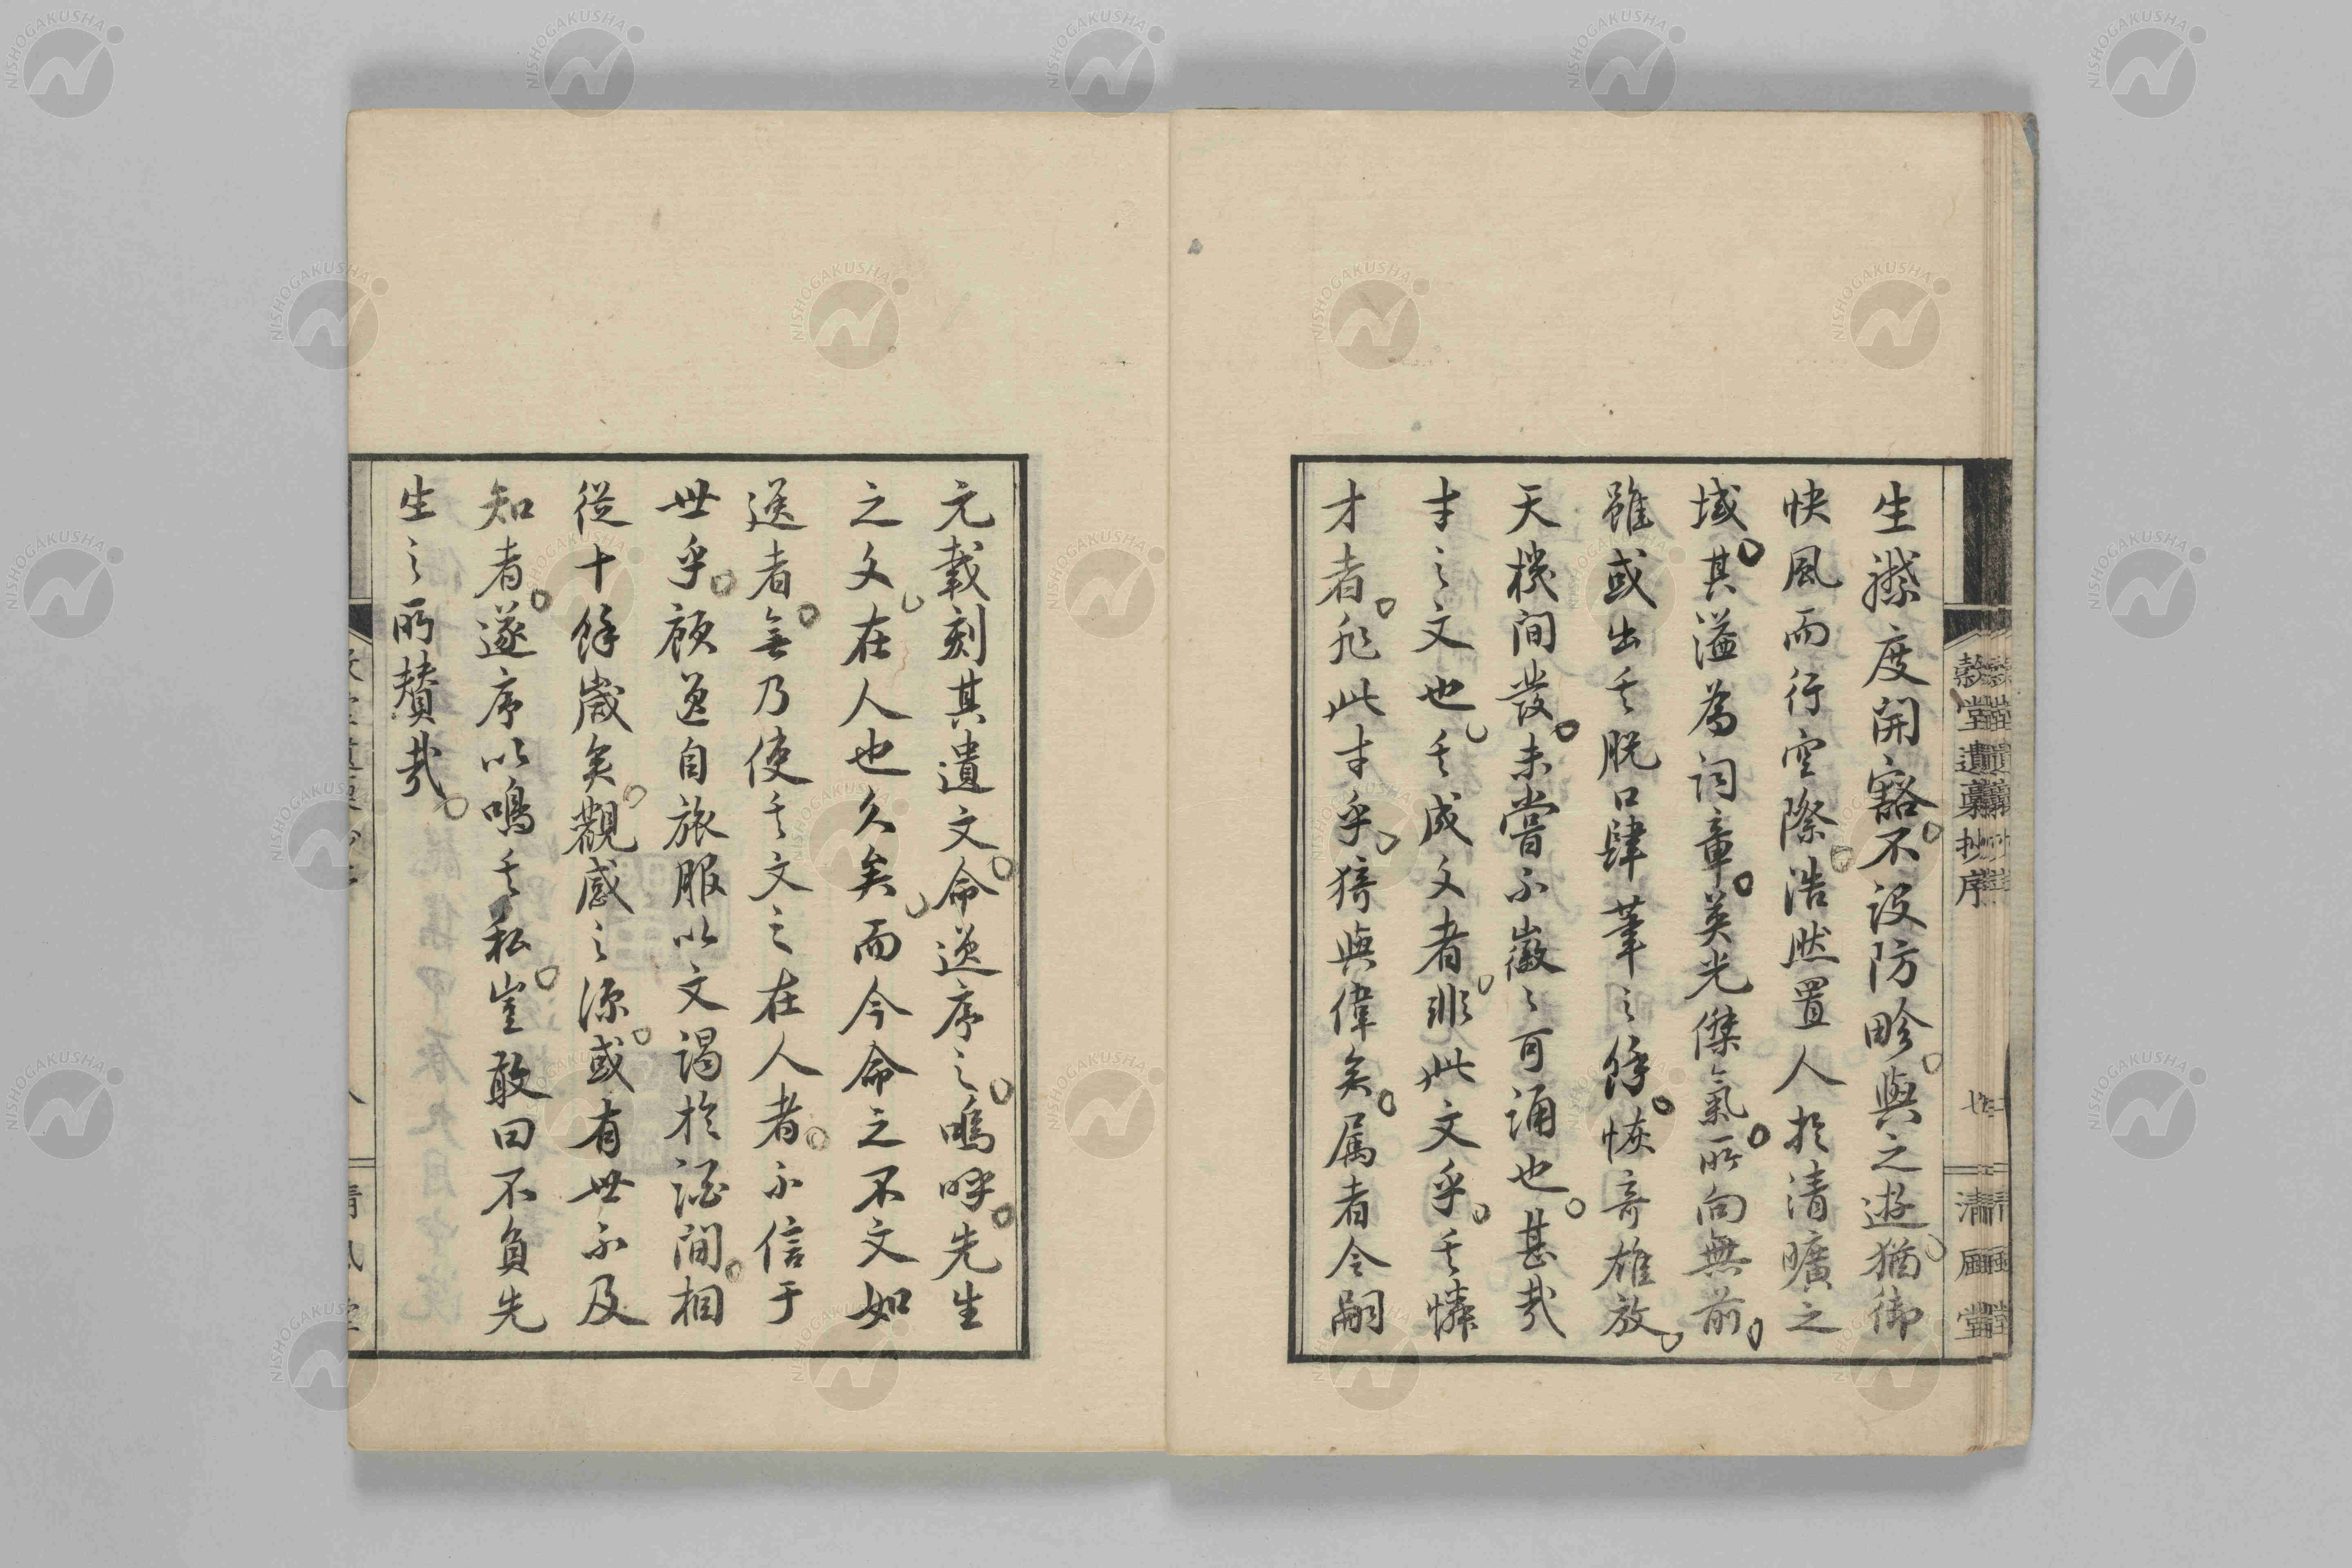 生襟度開豁不設防畛與之遊猶御
快風而行空際浩然置人於清曠之
域其溢為詞章英光傑氣所向無前
雖或出其脱口肆筆之餘恢奇雄放
天機間發未嘗不徽之可誦也甚哉
才之文也其成文者非此文乎其憐
才者非此才乎猗與偉矣属者令嗣
穀堂遺稾抄序
七
清風堂
元載刻其遺文命逸序之嗚呼先生
之文在人也久矣而今命之不文如
逸者無乃使其文之在人者不信于
世乎顧逸自旅服以文謁於酒間相
從十餘歲矣觀感之深或有世不及
知者遂序以鳴其私豈敢曰不負先
生之所贊哉
八
NISHOGAKUSHA